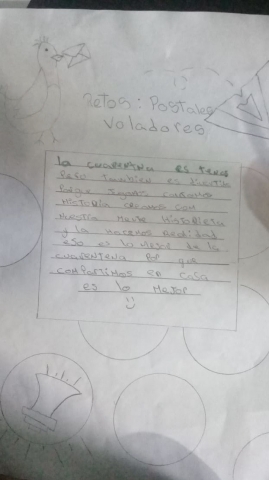 Retos: Postales
voladores
la cuarentena es
Pero también es
Porque jugamos
HISTORIA creamos con
Nuestra Mente Historieta
y la hacemos Realidad
eso es lo Mejor de la
cuarentena Por que
compartimos en casa
es lo Mejor